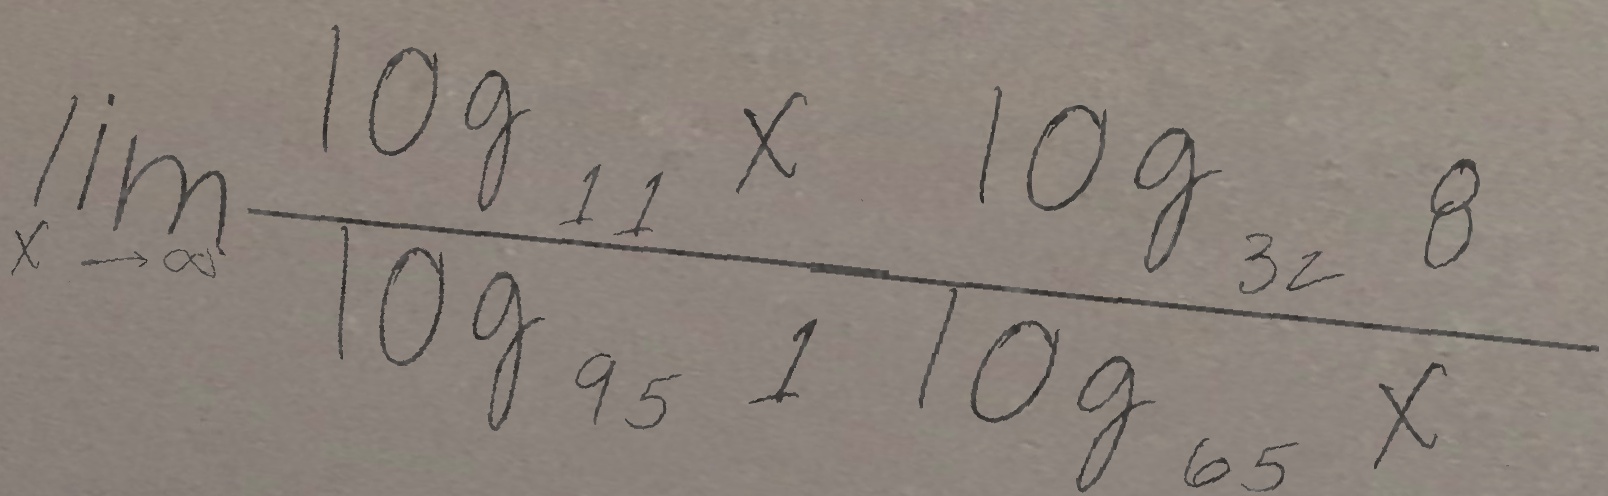 \lim_{x \to \infty} \frac{\log_{11} x \log_{32} 8}{\log_{95} 1 \log_{65} x}